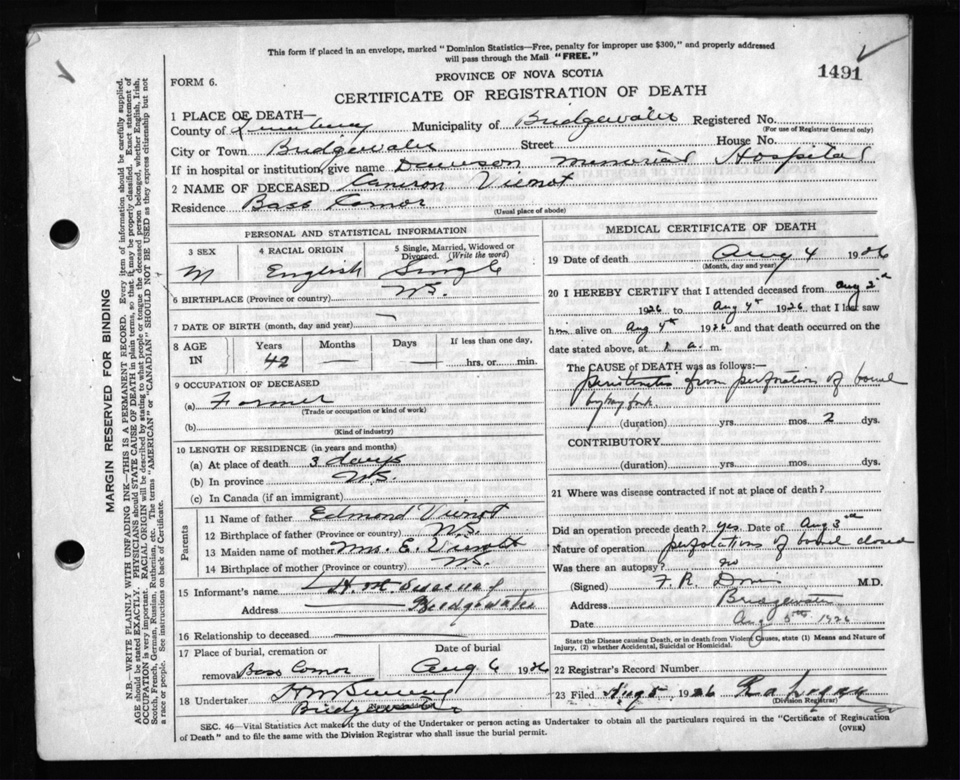 This form if placed in an envelope, marked "Dominion Statistics—Free, penalty for improper use $300," and properly addressed
will pass through the Mail "FREE."
1491
FORM 6.
PROVINCE OF NOVA SCOTIA
CERTIFICATE OF REGISTRATION OF DEATH
1 PLACE OF DEATH—
County of Lunenburg Municipality of Bridgewater Registered No.
(For use of Registrar General only)
City or Town Bridgewater Street House No.
If in hospital or institution, give name Dawson Memorial Hospital
2 NAME OF DECEASED Cameron Vienot
Residence Bass Cornor
(Usual place of abode)
PERSONAL AND STATISTICAL INFORMATION
3 SEX 4 RACIAL ORIGIN 5 Single, Married, Widowed or Divorced. (Write the word)
M English Single
6 BIRTHPLACE (Province or country) N.S.
7 DATE OF BIRTH (month, day and year) —
8 AGE IN Years Months Days If less than one day,
42 — — hrs. or min.
9 OCCUPATION OF DECEASED
(a) Farmer
(Trade or occupation or kind of work)
(b)
(Kind of industry)
10 LENGTH OF RESIDENCE (in years and months)
(a) At place of death 3 days
(b) In province N.S.
(c) In Canada (if an immigrant)
Parents
11 Name of father Edmond Vienot
12 Birthplace of father (Province or country) N.S.
13 Maiden name of mother Mrs. E. Vienot
14 Birthplace of mother (Province or country) N.S.
15 Informant's name
Address Bridgewater
16 Relationship to deceased
17 Place of burial, cremation or removal Bass Cornor Date of burial Aug 6 1926
18 Undertaker
Bridgewater
MEDICAL CERTIFICATE OF DEATH
19 Date of death Aug 4 1926
(Month, day and year)
20 I HEREBY CERTIFY that I attended deceased from Aug 2nd
1926 to Aug 4th 1926 that I last saw
him alive on Aug 4th 1926 and that death occurred on
date stated above, at a. m.
The CAUSE of DEATH was as follows:—
peritonitis from perforation of bowel
by hay fork
(duration) yrs. mos. 2 dys.
CONTRIBUTORY
(duration) yrs. mos. dys.
21 Where was disease contracted if not at place of death?
Did an operation precede death? yes Date of Aug 3rd
Nature of operation perforations of bowel closed
Was there an autopsy? no
(Signed) F. R. Davis M.D.
Address Bridgewater
Date Aug 5th 1926
State the Disease causing Death, or in death from Violent Causes, state (1) Means and Nature of
Injury, (2) whether Accidental, Suicidal or Homicidal.
22 Registrar's Record Number
23 Filed Aug 5 1926
(Division Registrar)
SEC. 46—Vital Statistics Act makes it the duty of the Undertaker or person acting as Undertaker to obtain all the particulars required in the "Certificate of Registration
of Death" and to file the same with the Division Registrar who shall issue the burial permit.
(OVER)
MARGIN RESERVED FOR BINDING
N.B.—WRITE PLAINLY WITH UNFADING INK—THIS IS A PERMANENT RECORD. Every item of information should be carefully supplied.
AGE should be stated EXACTLY. PHYSICIANS should STATE CAUSE OF DEATH in plain terms, so that it may be properly classified. Exact statement of
OCCUPATION is very important. RACIAL ORIGIN will be described by stating to what people or tongue the deceased person belonged, whether English, Irish,
Scotch, French, German, Russian, Ruthenian, etc. The terms "AMERICAN" or "CANADIAN" SHOULD NOT BE USED as they express citizenship but not
a race or people. See instructions on back of Certificate.